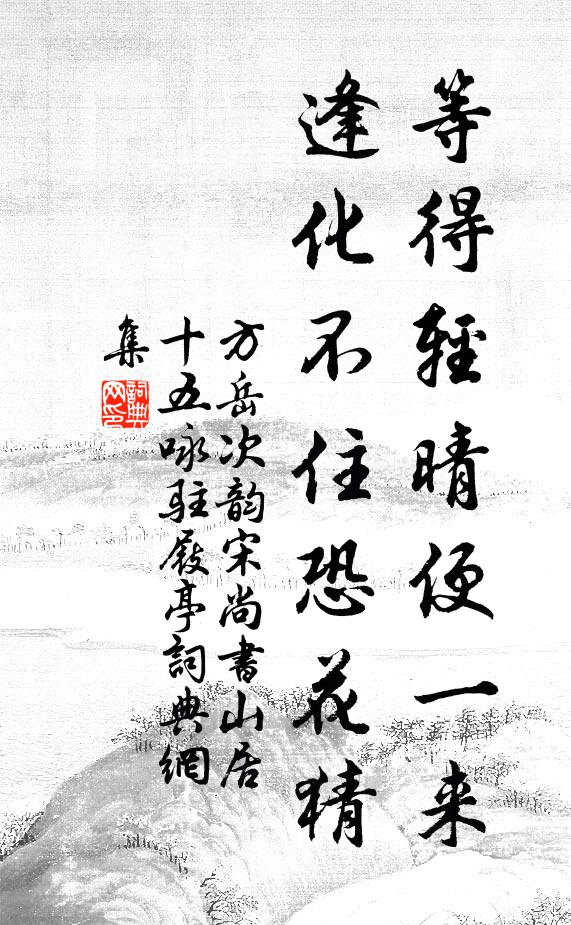 等得輕晴便一来
逢化不住恐花猜
方岳次韵宋尚書山居
十五咏駐屐亭詞典網
集
詞典
网印